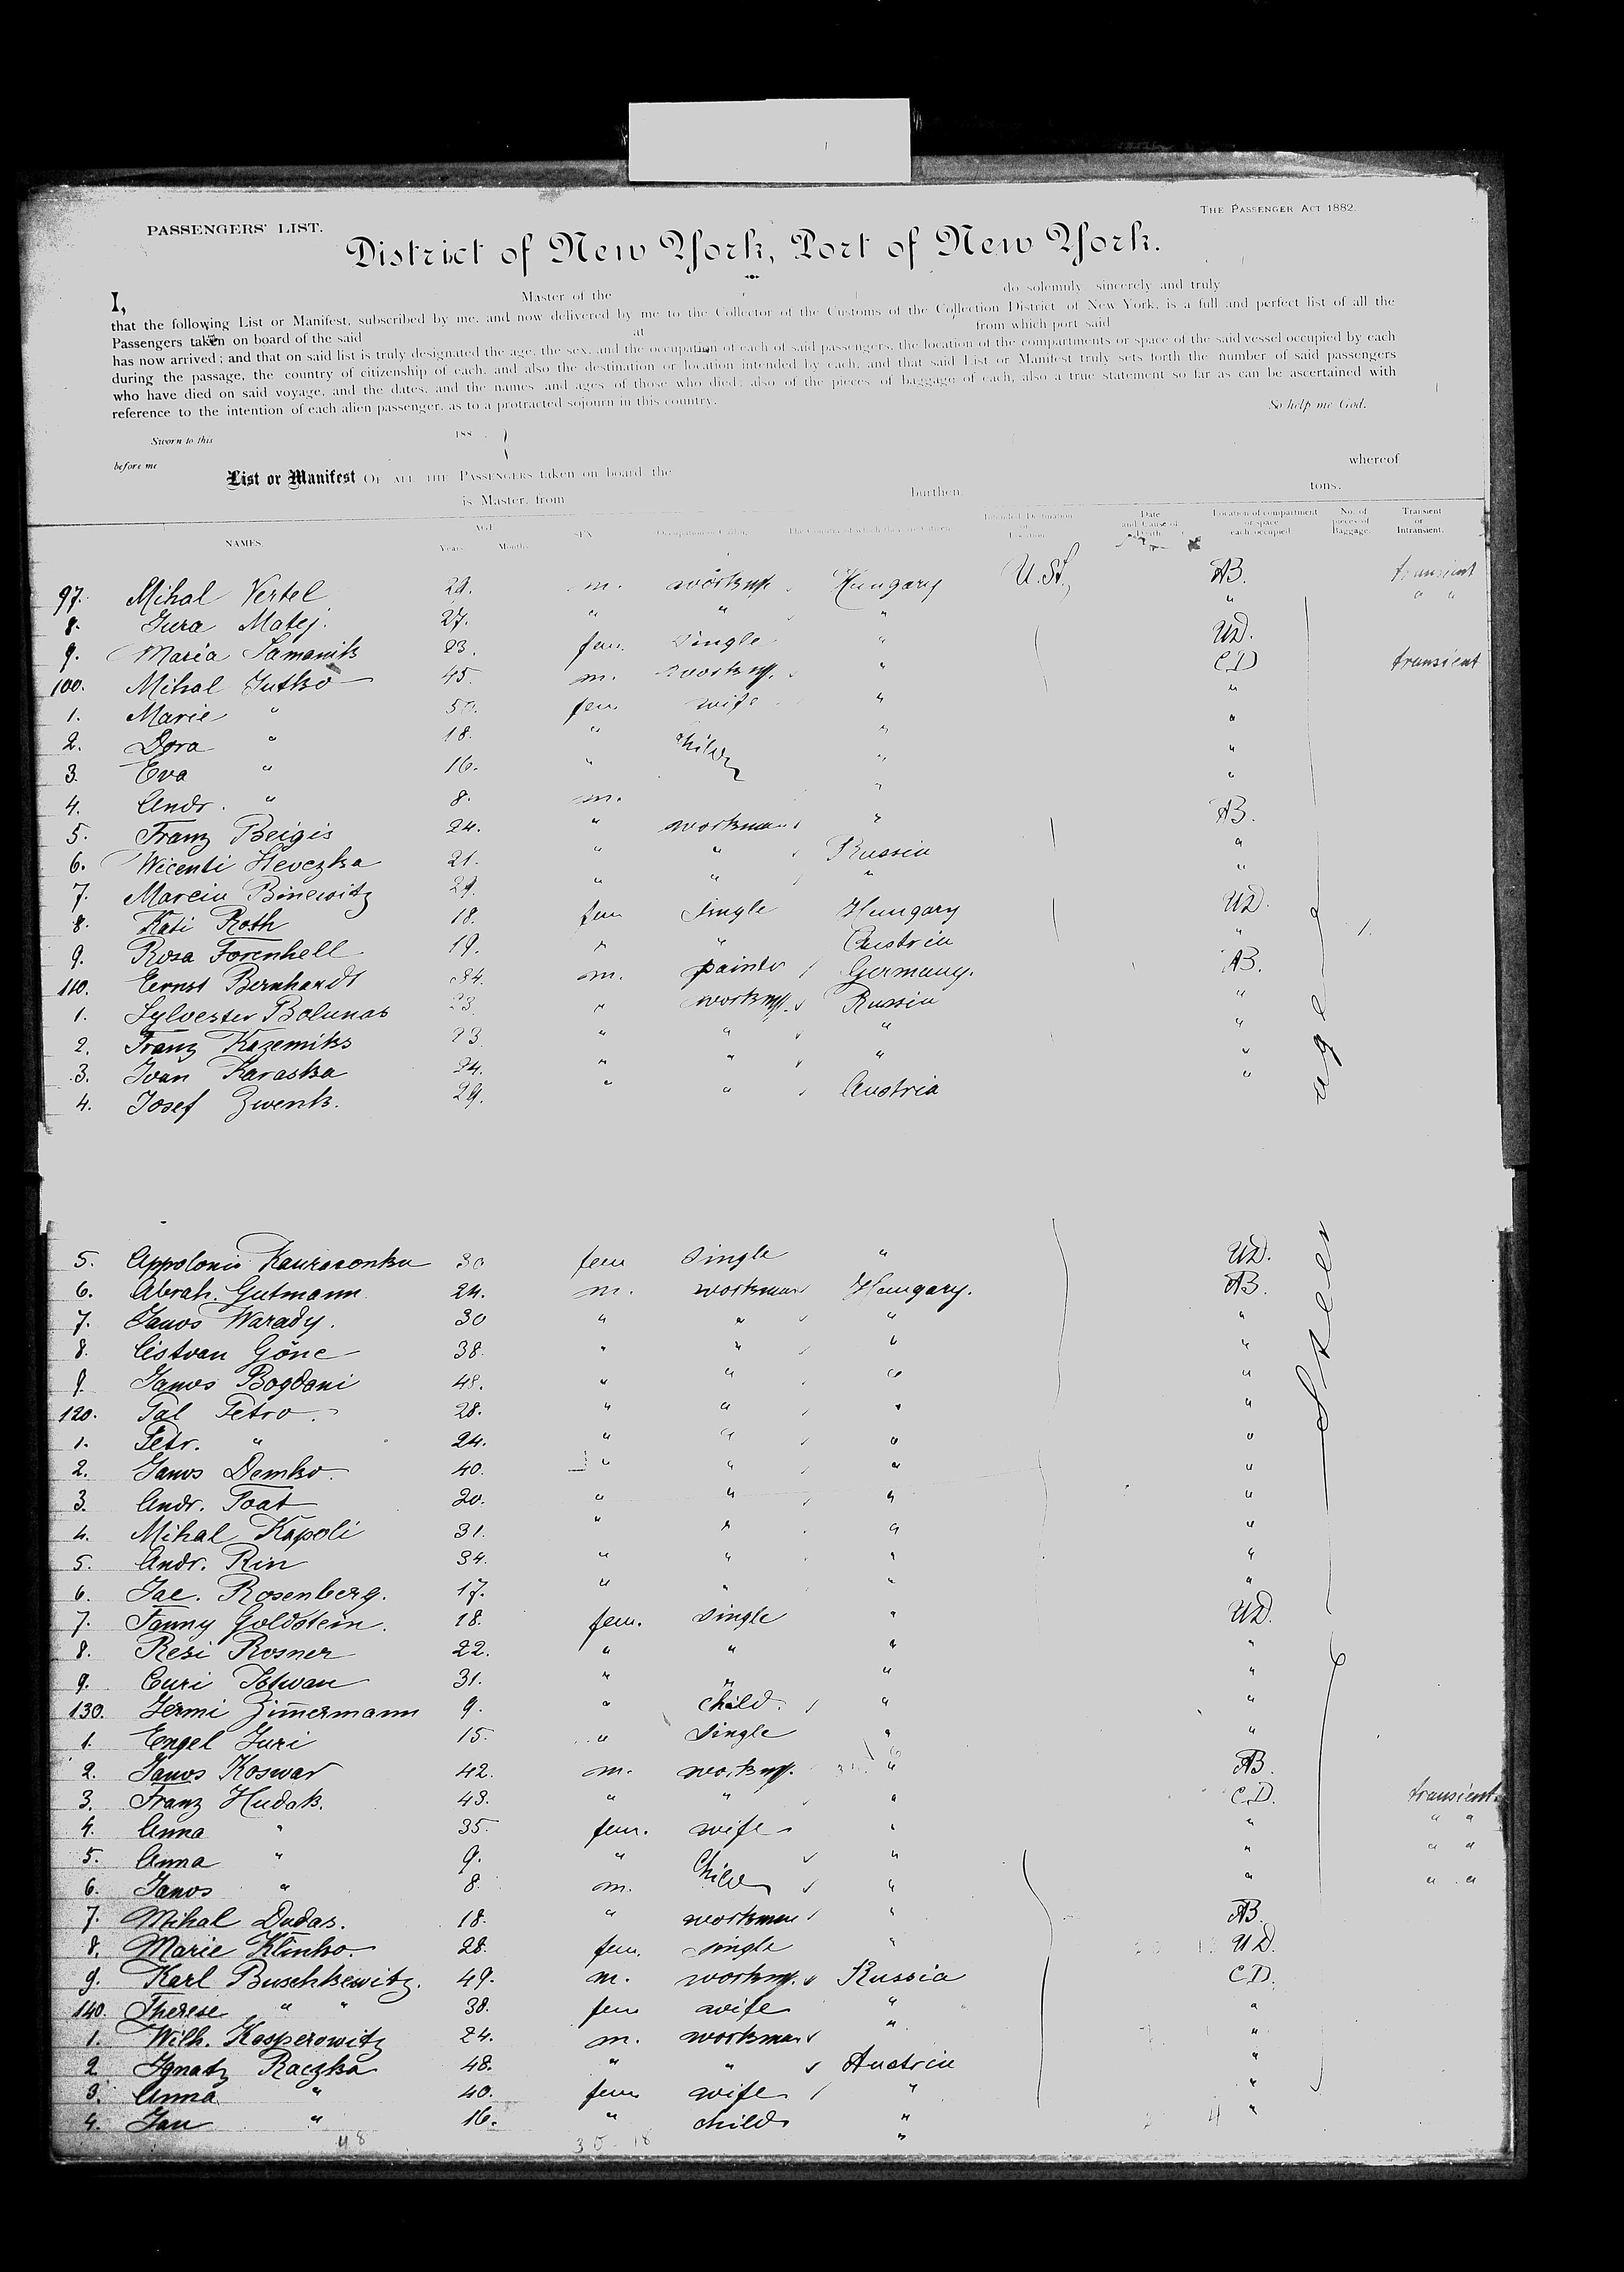 THE PASSENGER ACT 1882.
PASSENGERS' LIST.
District of New York, Port of New York.
I, Master of the do solemnly sincerely and truly
that the following List or Manifest, subscribed by me, and now delivered by me to the Collector of the Customs of the Collection District of New York, is a full and perfect list of all the
Passengers taken on board of the said at from which port said
has now arrived; and that on said list is truly designated the age, the sex, and the occupation of each of said passengers, the location of the compartments or space of the said vessel occupied by each
during the passage, the country of citizenship of each, and also the destination or location intended by each, and that said List or Manifest truly sets forth the number of said passengers
who have died on said voyage, and the dates, and the names and ages of those who died; also of the pieces of baggage of each, also a true statement so far as can be ascertained with
reference to the intention of each alien passenger, as to a protracted sojourn in this country. So help me God.
Sworn to this 188
before me
List or Manifest OF ALL THE PASSENGERS taken on board the whereof
is Master, from burthen tons.
NAMES. AGE Years Months SEX Date and Cause of Death Location of compartment or space each occupied No. of pieces of Baggage. Transient or Intransient.
97. Mihal Vertel 29. m. Hungary U. St. AB. transient
8. Jura Matej. 27. " " " " " "
9. Maria Samanik 23. fem. single " UD.
100. Mihal Jutko 45. m. " CD transient
1. Marie " 50. fem wife " "
2. Dora " 18. " " "
3. Eva " 16. " " "
4. Andr. " 8. m. " "
5. Franz Beigis 24. " workman " AB.
6. Wicenti Hevezka 21. " " Russia "
7. Marcin Binewitz 29. " " " "
8. Kati Roth 18. fem single Hungary UD.
9. Rosa Forenhell 19. " " Austria "
110. Ernst Bernhardt 34. m. painter Germany. AB.
1. Sylvester Bolunas 23. " Russia "
2. Franz Kazemiks 23. " " " "
3. Ivan Karaska 24. " " " "
4. Josef Zwenk. 29. " " Austria "
5. Appolonia 30 fem single " UD.
6. Abrah. Gutmann 24. m. workman Hungary. AB.
7. Janos Warady. 30 " " " "
8. Gönc 38. " " " "
9. Janos Bogdani 48. " " " "
120. Pal Petro. 28. " " " "
1. Petr. " 24. " " " "
2. Janos Demko. 40. " " " "
3. Andr. Toat 20. " " " "
4. Mihal Kapoli 31. " " " "
5. Andr. Rin 34. " " " "
6. Jac. Rosenberg. 17. " " " "
7. Fanny Goldstein. 18. fem. single " UD.
8. Resi Rosner 22. " " " "
9. Istwan 31. " " " "
130. Zim̄ermann 9. " child. " "
1. Engel Juri 15. " single " "
2. Janos Koswar 42. m. " AB.
3. Franz Hudak. 43. " " " C.D. transient
4. Anna " 35. fem. wife " " " "
5. Anna " 9. " " " " "
6. Janos " 8. m. " " " "
7. Mihal Dudas. 18. " workman " AB.
8. Marie Klinko. 28. fem. single " UD.
9. Karl Buschkewitz. 49. m. Russia CD.
140. Therese " " 38. fem wife " "
1. Wilh. Kasperowitz 24. m. workman " "
2 Ignatz Raczka 48. " " Austria "
3. Anna " 40. fem wife " "
4. Jan " 16. " child " "
"
48 30 18
Steerage